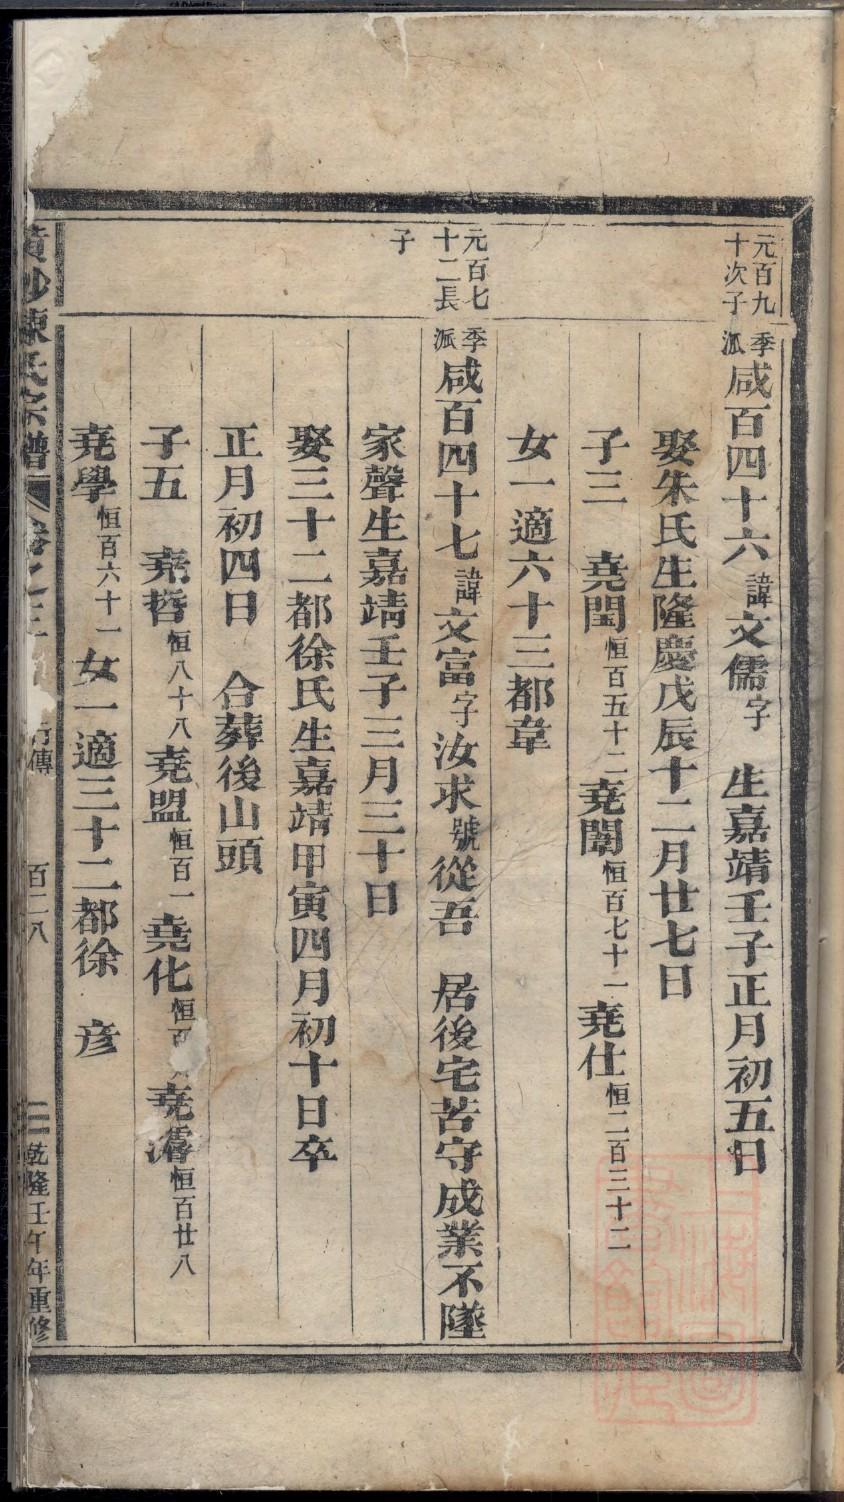 元百九
十次子
季派咸百四十六諱文儒字 生嘉靖壬子正月初五日
娶朱氏生隆慶戊辰十二月廿七日
子三 堯閏恒百五十二堯闈恒百七十一堯仕恒二百三十二
女一適六十三都韋
元百七
十二長
子
季派咸百四十七諱文富字汝求號從吾 居後宅苦守成業不墜
家聲生嘉靖壬子三月三十日
娶三十二都徐氏生嘉靖甲寅四月初十日卒
正月初四日 合葬後山頭
子五 堯哲恒八十八堯盟恒百一堯化恒百 堯濬恒百廿八
堯學恒百六十一女一適三十二都徐 彥
黃沙陳氏宗譜 卷之三 行傳 百二八 乾隆壬午年重修
上海圖書館藏